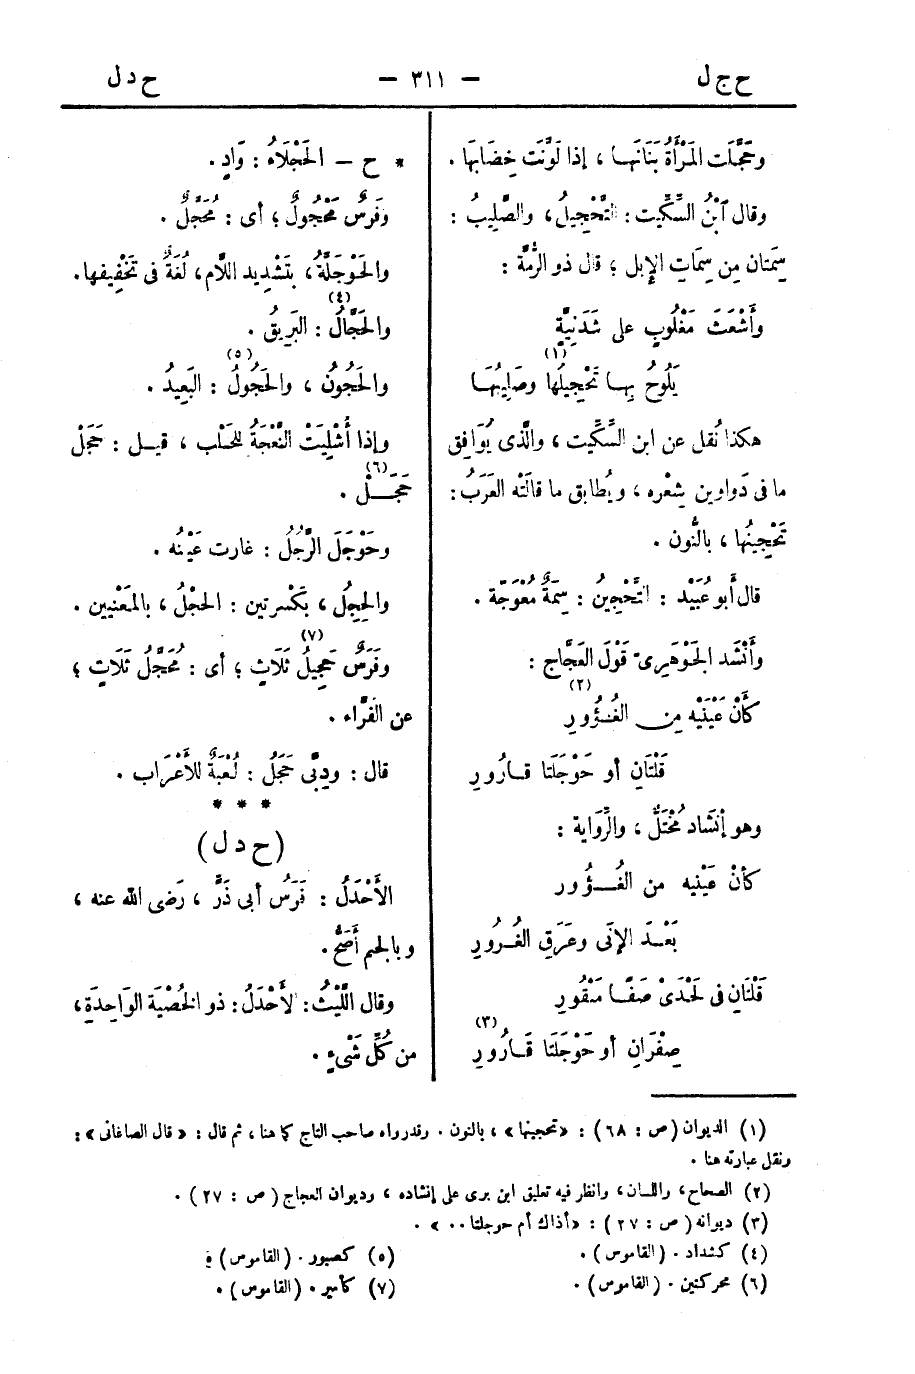 ح ج ل — ٣١١ — ح د ل
وحَجَّلَت المَرْأَةُ بَنَانَها ، إذا لَوَّنَت خِضَابَها .
وقال ٱبْنُ السِّكِّيت : التَّحْجِيلُ ، والصَّلِيبُ :
سِمَتان مِن سِمَاتِ الإبل ؛ قال ذو الرُّمَّة :
وأَشْعَثَ مَغْلُوبٍ على شَدَنِيَّةٍ
يَلُوحُ بِهـا تَحْجِيلُها وصَلِيبُهَـا (١)
هكذا نُقل عن ابن السِّكِّيت ، والَّذى يُوَافِق
ما فى دَواوين شِعْره ، ويُطابِق ما قالَتْه العَرَبُ :
تَحْجِينُها ، بالنُّون .
قال أَبو عُبَيْد : التَّحْجِينُ : سِمَةٌ مُعْوَجّة .
وأَنْشَد الجَوْهَرِىّ قَوْلَ العَجَّاج :
كَأَنّ عَيْنَيْه مِـن الغُـؤُورِ (٢)
قَلْتَانِ أو حَوْجَلَتَا قـارُورِ
وهو إنْشَاد مُخْتَلٌّ ، والرِّوَاية :
كأنّ عَيْنيه من الغُــؤُور
بَعْـدَ الإنَى وعَرَقِ الغُـرُورِ
قَلْتَانِ فى لَحْدَىْ صَفًـا مَنْقُورِ
صِفْرَانِ أو حَوْجَلَتَا قَـارُورِ (٣)
* ح – الحَجْلَاءُ : وَادٍ .
وفَرَسٌ مَحْجُولٌ ؛ أى : مُحَجَّلٌ .
والحَوْجَلَّةُ ، بتَشْدِيد اللَّام ، لُغَةٌ فى تَخْفِيفها .
والحَجَّالُ (٤) : البَرِيقُ .
والحَجُونُ ، والحَجُولُ (٥) : البَعِيدُ .
وإذا أُشْلِيَتْ النَّعْجَةُ لِلحَلْب ، قيـل : حَجَلْ
حَجَـلْ (٦) .
وحَوْجَلَ الرَّجُلُ : غارت عَيْنُه .
والحِجِلُ ، بكَسْرتين : الحجْلُ ، بالمَعْنيين .
وفَرَسٌ حَجِيلُ (٧) ثَلَاثٍ ؛ أى : مُحَجَّلُ ثَلَاثٍ ؛
عن الفَرَّاء .
قال : ودِبَّى حَجَلُ : لُعْبَةٌ للأَعْرَاب .
* * *
(ح د ل)
الأَحْدَلُ : فَرَسُ أبى ذَرٍّ ، رَضى الله عنه ،
وبالجيم أَصَحُّ .
وقال اللَّيْثُ : الأَحْدَلُ : ذو الخُصْيَة الوَاحِدَةِ ،
من كُلِّ شَىْءٍ .
(١) الديوان (ص : ٦٨) : «تحجينها» ، بالنون . وقد رواه صاحب التاج كما هنا ، ثم قال : «قال الصاغانى» :
ونقل عبارته هنا .
(٢) الصحاح ، واللسان ، وانظر فيه تعليق ابن برى على إنشاده ، وديوان العجاج (ص : ٢٧) .
(٣) ديوانه (ص : ٢٧) : «أذاك أم حوجلتا ..» .
(٤) كشداد . (القاموس) . (٥) كصبور . (القاموس) .
(٦) محركتين . (القاموس) . (٧) كأمير . (القاموس) .